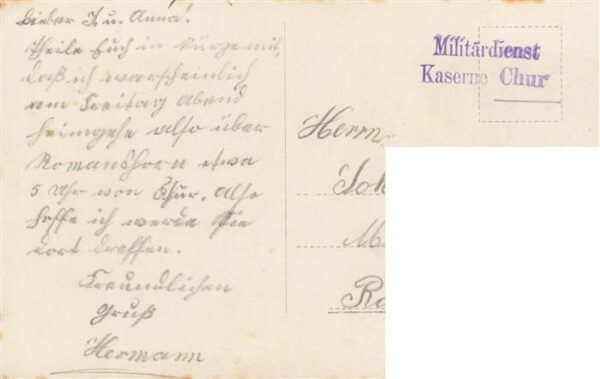 Lieber J. u. Anna!
Theile Euch in Kürze mit,
daß ich warscheinlich
am Freitag Abend
heimgehe also über
Romanshorn etwa
5 Uhr von Chur. Also
hoffe ich werde Sie
dort treffen.
Freundlichen
Gruß
Hermann
Militärdienst
Kaserne Chur
Herrn